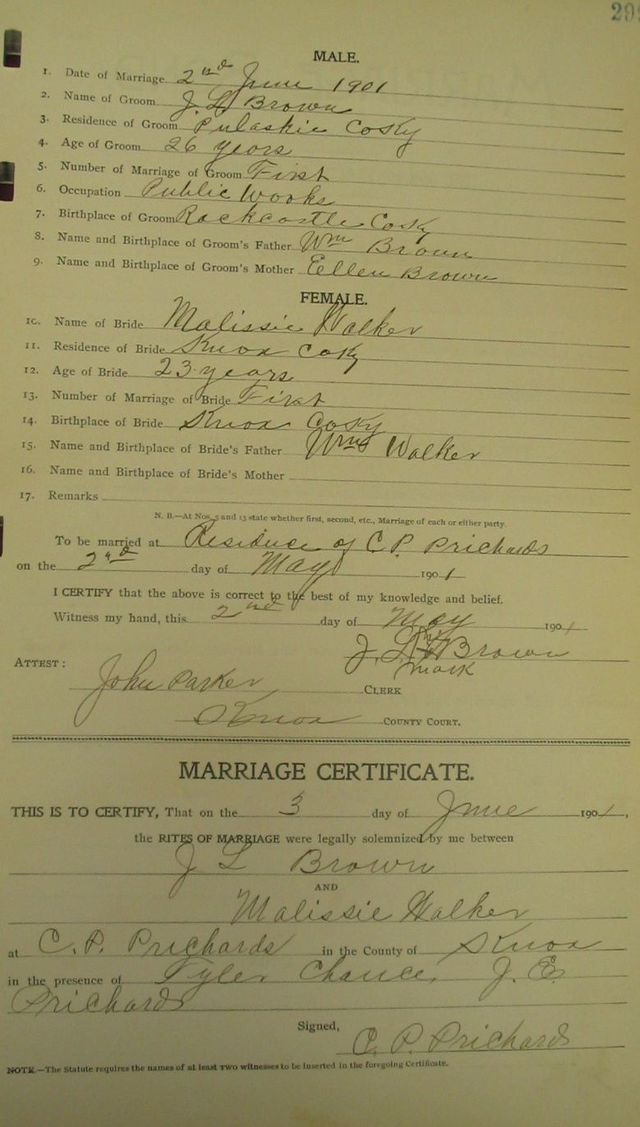 29
MALE.
1. Date of Marriage 2nd June 1901
2. Name of Groom J. L. Brown
3. Residence of Groom Pulaskie Co Ky
4. Age of Groom 26 years
5. Number of Marriage of Groom First
6. Occupation Public Works
7. Birthplace of Groom Rockcastle Co Ky
8. Name and Birthplace of Groom's Father Wm Brown
9. Name and Birthplace of Groom's Mother Eellen Brown
FEMALE.
10. Name of Bride Malissie Walker
11. Residence of Bride Knox Co Ky
12. Age of Bride 23 years
13. Number of Marriage of Bride First
14. Birthplace of Bride Knox Co Ky
15. Name and Birthplace of Bride's Father Wm Walker
16. Name and Birthplace of Bride's Mother
17. Remarks
N. B.—At Nos. 5 and 13 state whether first, second, etc., Marriage of each or either party.
To be married at Residence of C P Prichards
on the 2nd day of May 1901
I CERTIFY that the above is correct to the best of my knowledge and belief.
Witness my hand, this 2nd day of May 1901
J. L. Brown
mark
ATTEST:
John Parker CLERK
Knox COUNTY COURT.
MARRIAGE CERTIFICATE.
THIS IS TO CERTIFY, That on the 3 day of June 1901,
the RITES OF MARRIAGE were legally solemnized by me between
J L Brown
AND
Malissie Walker
at C. P. Prichards in the County of Knox
in the presence of Tyler Chance, J. E.
Prichards
Signed,
C. P. Prichards
NOTE.—The Statute requires the names of at least two witnesses to be inserted in the foregoing Certificate.